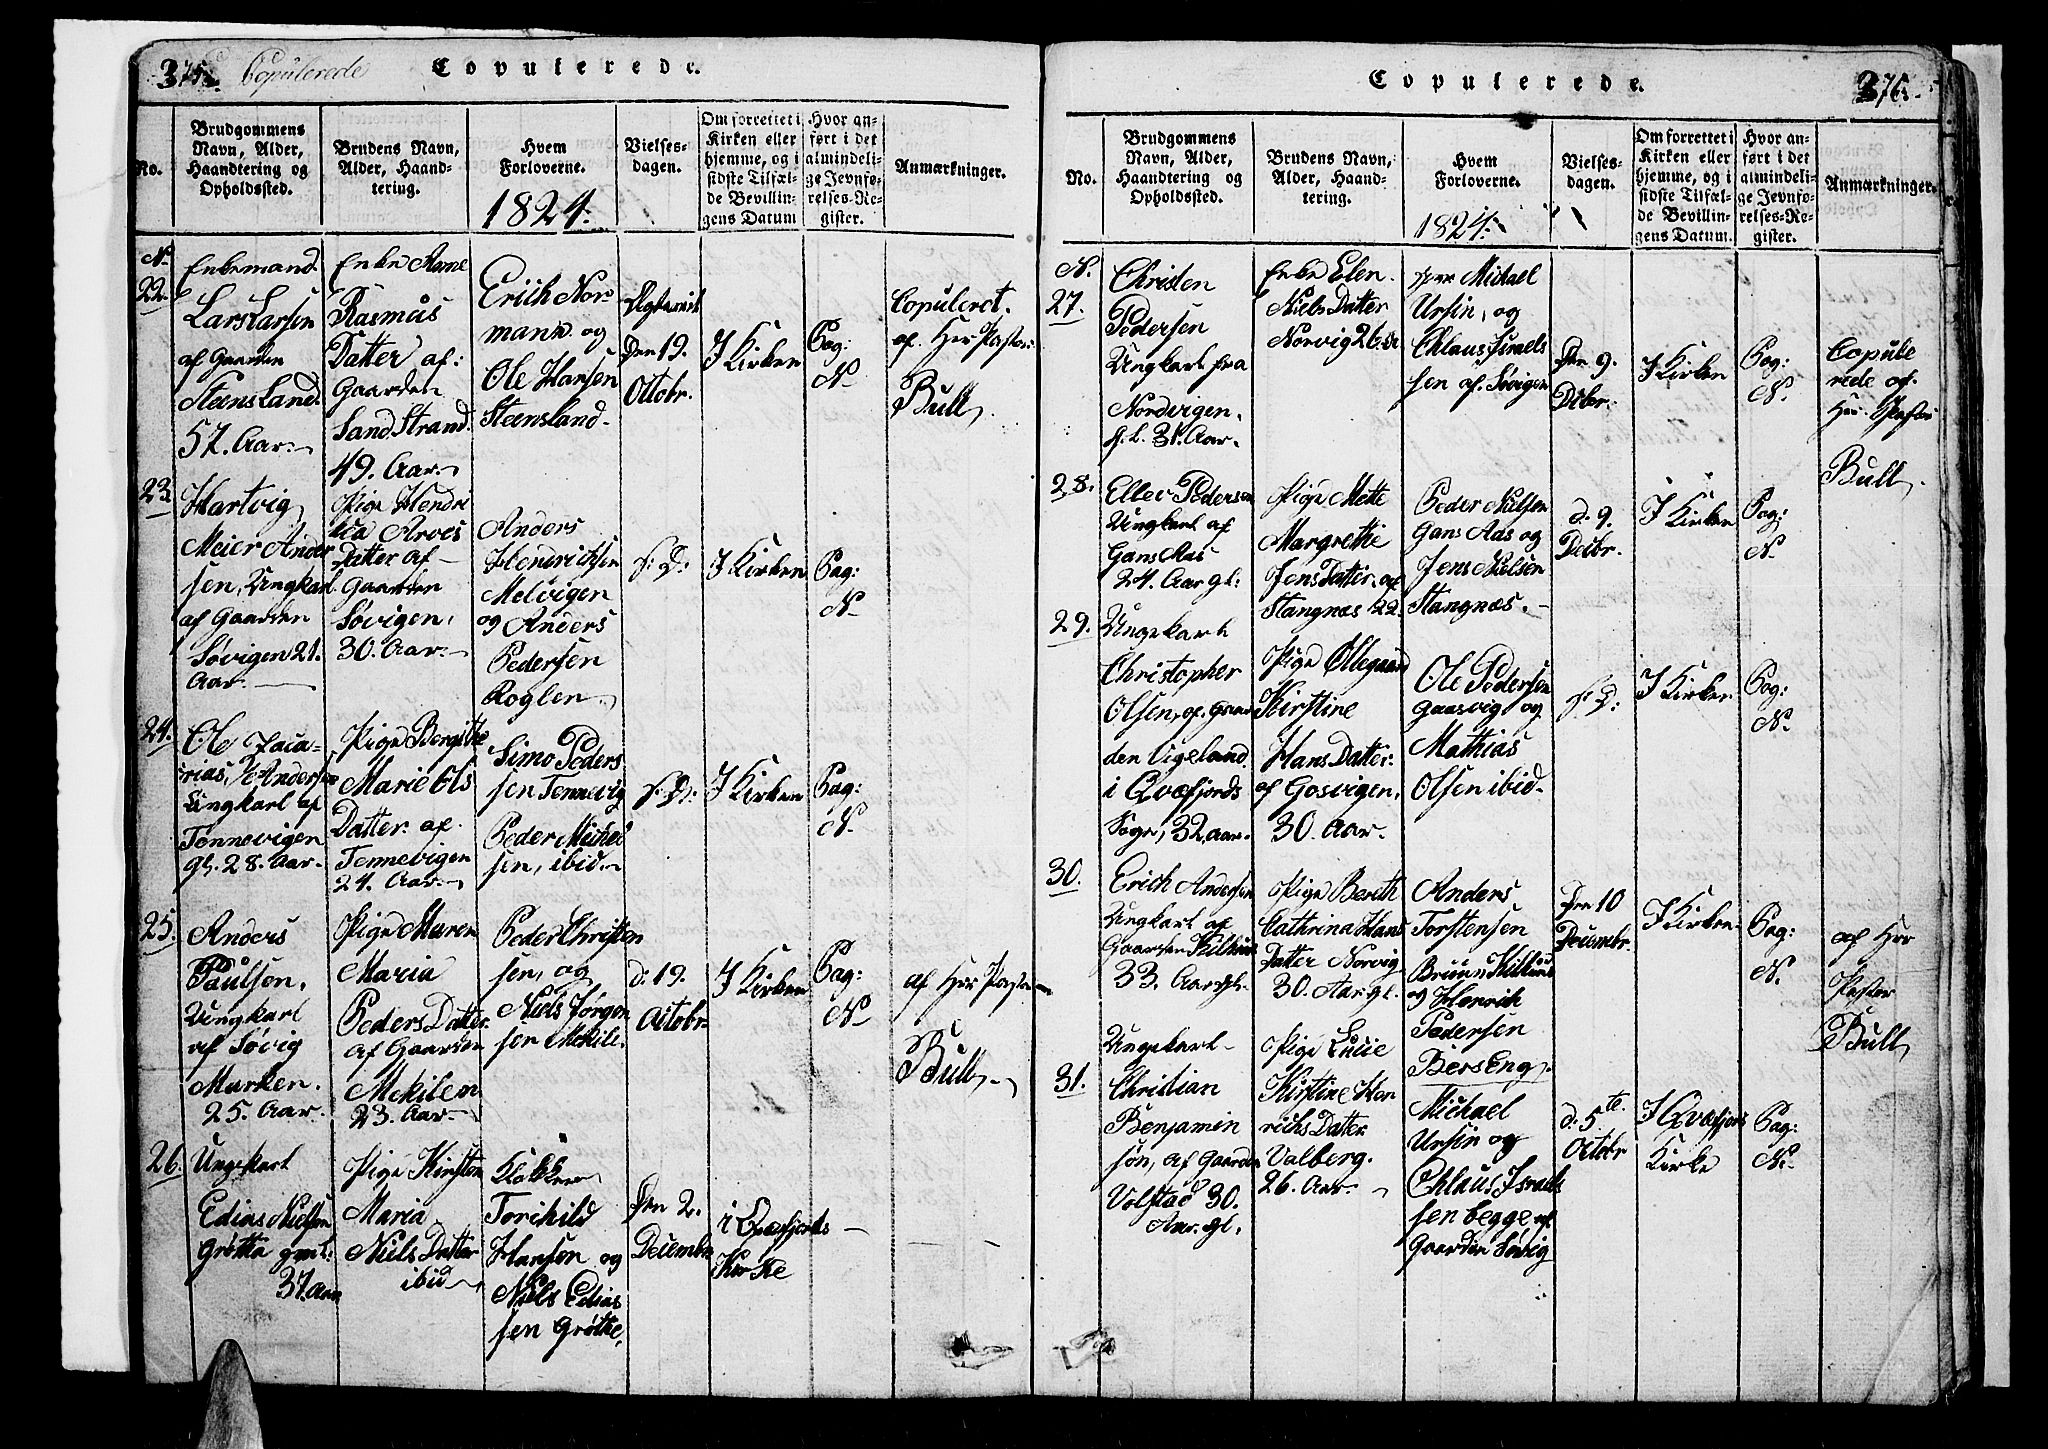 375. Copulerede
Copulerede.
No.
Brudgommens
Navn, Alder,
Haandtering og
Opholdssted.
Brudens Navn,
Alder, Haand-
tering.
Hvem
Forloverne.
1824.
Vielses-
dagen.
Om forrettet i
Kirken eller
hjemme, og i
sidste Tilfæl-
de Bevillin-
gens Datum
Hvor an-
ført i det
almindeli-
ge Jevnfø-
relses-Re-
gister.
Anmærkninger.
N.
22.
Enkemand
Lars Larsen
af Gaarden
Steensland
57. Aar.
Enke Anne
Rasmus
Datter af
Gaarden
Sand Strand.
49. Aar.
Erich Nor
mann og
Ole Hansen
Steensland.
Den 19.
Octobr.
I Kirken
Pag:
N.
Copuleret.
af Hrr Pastor
Bull
23
Hartvig
Meier Ander
sen, Ungkarl
af Gaarden
Søvigen 21.
Aar.
Pige Hendri
ca Arves
Datter af
Gaarden
Søvigen,
30. Aar.
Anders
Hendrichsen
Melvigen
og Anders
Pedersen
Roglen.
S: D:
I Kirken
Pag:
N.
24.
Ole Zaca-
rias, Andersen
Ungkarl af
Tennevigen
gl. 28. Aar.
Pige Bergithe
Marie Ols
Datter af
Tennevigen
24. Aar.
Simo Peders
sen Tennevig
Peder Michel
sen, ibid.
S: D:
I Kirken
Pag:
N.
25.
Anders
Paulsen,
Ungkarl
af Søvig
Marken.
25. Aar.
Pige Maren
Maria
Peders Datter
af Gaarden
Mekilen
23. Aar.
Peder Christen
sen, og
Niels Jørgen
sen Mekile.
d. 19.
Octobr
I Kirken
Pag:
N.
af Hrr Pastor
Bull.
26.
Ungekarl
Edias Nielsen
Grøtta gml:
37. Aar
Pige Kirsten
Maria
Niels Datter
ibid
Klokker
Torchild
Hansen og
Niels Edias
sen Grøtte,
Den 2.
Decembr
i Qvæfjords
Kirke
Copulerede.
376.
No.
Brudgommens
Navn, Alder,
Haandtering og
Opholdssted.
Brudens Navn,
Alder, Haand-
tering.
Hvem
Forloverne.
1824.
Vielses-
dagen.
Om forrettet i
Kirken eller
hjemme, og i
sidste Tilfæl-
de Bevillin-
gens Datum.
Hvor an-
ført i det
almindeli-
ge Jevnfø-
relses-Re-
gister.
Anmærkninger.
N.
27.
Christen
Pedersen
Ungkarl fra
Nordvigen.
gl. 31. Aar.
Enke Elen
Niels Datter
Norvig 26
Michael
Ursin, og
Chlaus Israels
sen af Søvigen
Den 9.
Decbr.
I Kirken
Pag:
N.
Copule
rede af
Hrr Pastor
Bull
28.
Eller Pedersen
Ungkarl af
Gans Aas
24. Aar gl:
Pige Mette
Margrethe
Jens Datter af
Stangnæs 22.
Peder Nielsen
Gans Aas og
Jens Nielsen
Stangnæs.
d. 9.
Decbr.
I Kirken
Pag:
N.
29.
Ungekarl
Christopher
Olsen, af Gaar
den Vigeland
i Qvæfjords
Sogn, 32 aar.
Pige Ollegaard
Kirstine
Hans Datter
af Gosvigen,
30. Aar.
Ole Pedersen
Gaasvig og
Mathias
Olsen ibid.
S: D:
I Kirken
Pag:
N.
30.
Erich Andersen
Ungkarl af
Gaarden Kilhuus
33. Aar gl.
Pige Bereth
Cathrina Hans
Datter Norvig
30. Aar gl.
Anders
Torstensen
Bruun Kilhuus
og Henrich
Pedersen
Berseng.
Den 10
Decembr.
I Kirken
Pag:
N.
af Hrr
Pastor
Bull
31.
Ungekarl
Christian
Benjamin
søn, af Gaarden
Volstad 30.
Aar. gl.
Pige Lucie
Kirstine Hen
richs Datter
Valberg.
26. Aar.
Michael
Ursin og
Chlaus Israel
sen begge af
Gaarden Søvig
d. 5te
Octobr
I Qvæfjors
Kirke
Pag:
N.